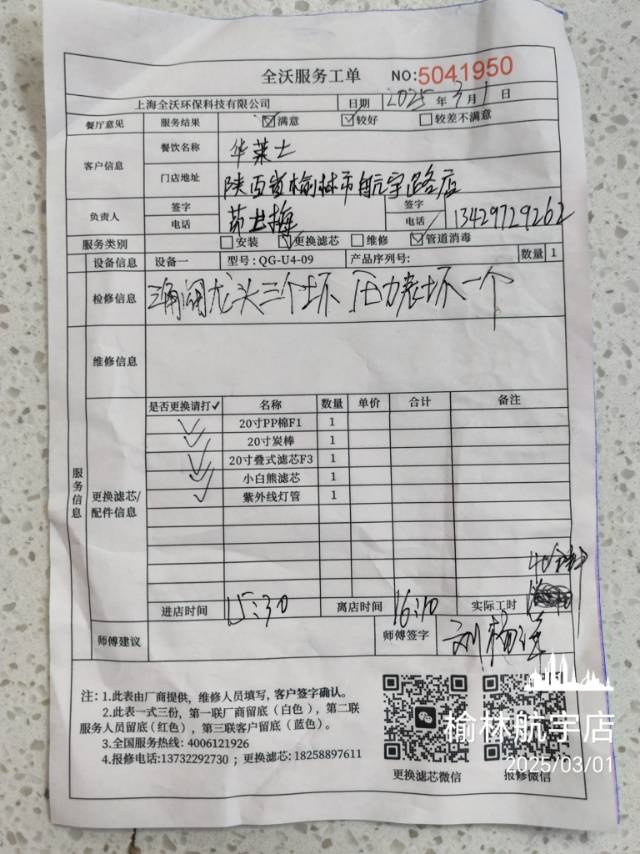 全沃服务工单 NO:5041950
上海全沃环保科技有限公司 日期 2025 年 3 月 1 日
餐厅意见 服务结果 ☑满意 ☑较好 □较差不满意
客户信息 餐饮名称 华莱士
门店地址 陕西省榆林市航宇路店
负责人 签字 电话 签字 电话 13429729262
服务类别 □安装 ☑更换滤芯 □维修 ☑管道消毒
设备信息 设备一 型号:QG-U4-09 产品序列号: 数量 1
检修信息 龙头三个坏 压力表坏一个
维修信息
服务信息
更换滤芯/配件信息
是否更换请打✓ 名称 数量 单价 合计 备注
✓ 20寸PP棉F1 1
✓ 20寸炭棒 1
✓ 20寸叠式滤芯F3 1
✓ 小白熊滤芯 1
✓ 紫外线灯管 1
40分钟
进店时间 15:30 离店时间 16:10 实际工时
师傅建议 师傅签字
注:1.此表由厂商提供，维修人员填写，客户签字确认。
2.此表一式三份，第一联厂商留底（白色），第二联
服务人员留底(红色)，第三联客户留底（蓝色）。
3.全国服务热线: 4006121926
4.报修电话:13732292730；更换滤芯: 18258897611
更换滤芯微信 报修微信
榆林航宇店
2025/03/01